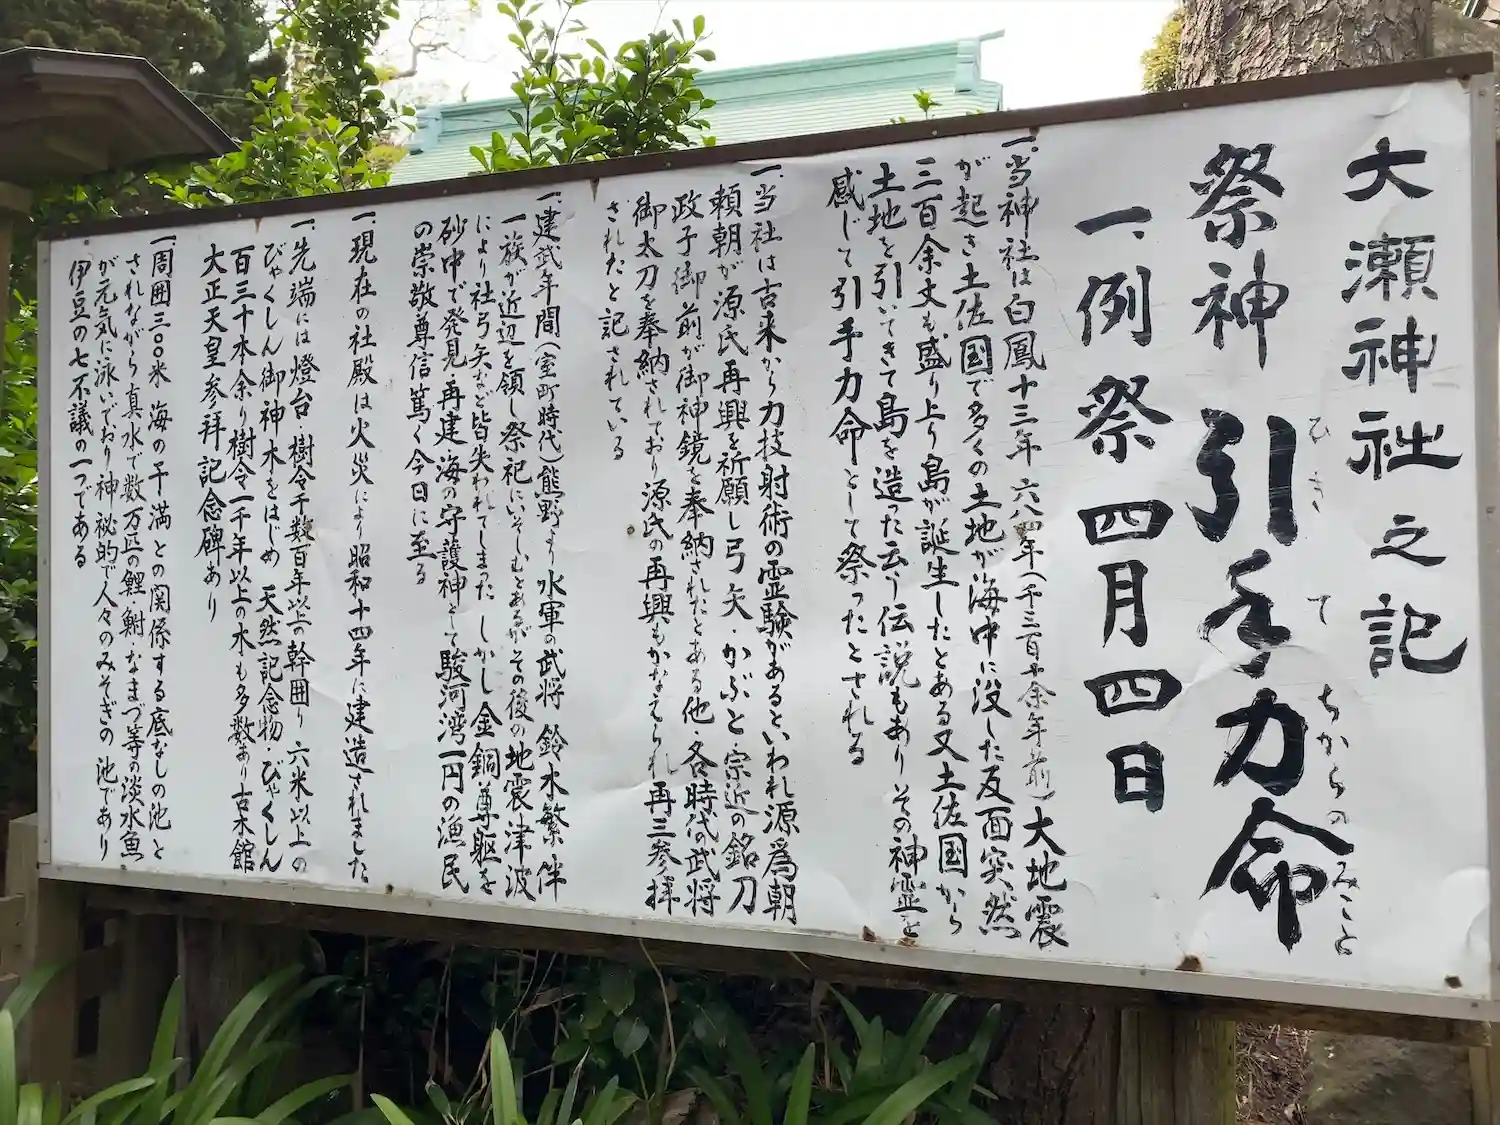 大瀬神社之記
祭神 引手力命
ひき て ちからの みこと
一、例祭 四月四日
一、当神社は白鳳十三年 六八四年(千三百廿余年前)大地震
が起き土佐国で多くの土地が海中に没した反面突然
三百余丈も盛り上り島が誕生したとある又土佐国から
土地を引いてきて島を造った云う伝説もありその神霊を
感じて引手力命として祭ったとされる
一、当社は古来から力技射術の霊験があるといわれ源為朝
頼朝が源氏再興を祈願し弓矢・かぶと・宗近の銘刀
政子御前が御神鏡を奉納されたとある他・各時代の武将
御太刀を奉納されており源氏の再興もかなえられ再三参拝
されたと記されている
一、建武年間(室町時代)熊野より水軍の武将 鈴木繁伴
一族が近辺を領し祭祀にいそしむとあるがその後の地震津波
により社弓矢など皆失われてしまった しかし金銅尊躯を
砂中で発見 再建 海の守護神として駿河湾一円の漁民
の崇敬尊信篤く今日に至る
一、現在の社殿は火災により昭和十四年に建造されました
一、先端には燈台・樹令千数百年以上の幹囲り六米以上の
びゃくしん御神木をはじめ 天然記念物・びゃくしん
百三十本余り樹令一千年以上の木も多数あり古木館
大正天皇参拝記念碑あり
一、周囲三〇〇米 海の干満との関係する底なしの池と
されながら真水で数万匹の鯉 鮒 なまづ等の淡水魚
が元気に泳いでおり神秘的で人々のみそぎの池であり
伊豆の七不議の一つである